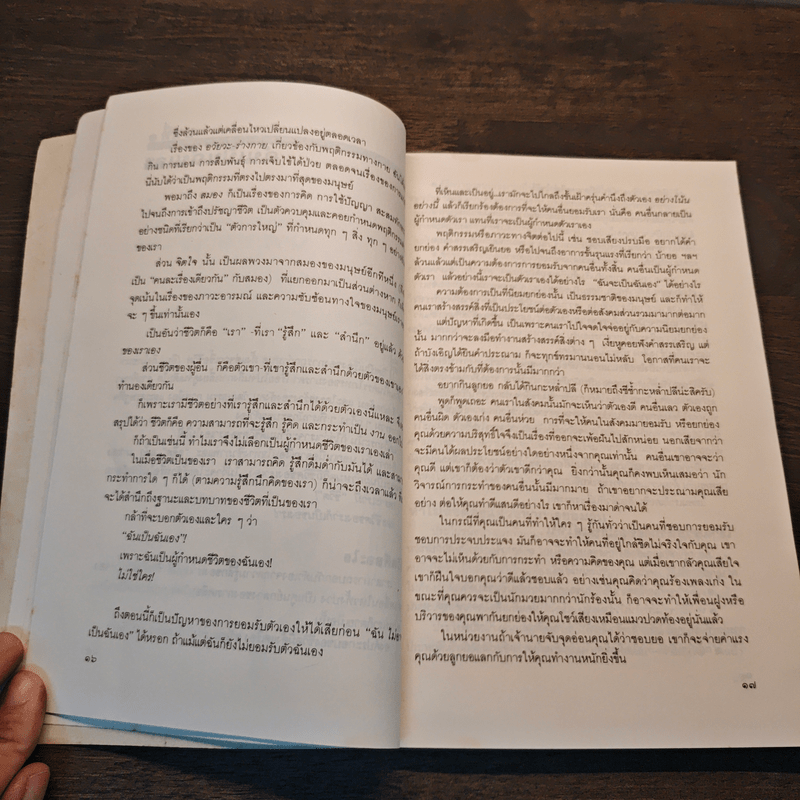 ซึ่งล้วนแล้วแต่เคลื่อนไหวเปลี่ยนแปลงอยู่ตลอดเวลา
เรื่องของ อวัยวะ-ร่างกาย เกี่ยวข้องกับพฤติกรรมทางกาย
กิน การนอน การสืบพันธุ์ การเจ็บไข้ได้ป่วย ตลอดจนเรื่องของ
นี่นับได้ว่าเป็นพฤติกรรมที่ตรงไปตรงมาที่สุดของมนุษย์
พอมาถึง สมอง ก็เป็นเรื่องของการคิด การใช้ปัญญา
ไปจนถึงการเข้าถึงปรัชญาชีวิต เป็นตัวควบคุมและคอยกำหนดพฤติกรรม
อย่างชนิดที่เรียกว่าเป็น “ตัวการใหญ่” ที่กำหนดทุก ๆ สิ่ง ทุก ๆ
ของเรา
ส่วน จิตใจ นั้น เป็นผลพวงมาจากสมองของมนุษย์อีกทีหนึ่ง
เป็น “คนละเรื่องเดียวกัน” กับสมอง) ที่แยกออกมาเป็นส่วนต่างหาก
จุดเน้นในเรื่องของภาวะอารมณ์ และความซับซ้อนทางใจของมนุษย์
จะ ๆ ขึ้นเท่านั้นเอง
เป็นอันว่าชีวิตก็คือ “เรา” -ที่เรา “รู้สึก” และ “สำนึก” อยู่แล้ว
ของเราเอง
ส่วนชีวิตของผู้อื่น ก็คือตัวเขา-ที่เขารู้สึกและสำนึกด้วยตัวของเขา
ทำนองเดียวกัน
ก็เพราะเรามีชีวิตอย่างที่เรารู้สึกและสำนึกได้ด้วยตัวเองนี่แหละ
สรุปได้ว่า ชีวิตก็คือ ความสามารถที่จะรู้สึก รู้คิด และกระทำเป็น งาน
ก็ถ้าเป็นเช่นนี้ ทำไมเราจึงไม่เลือกเป็นผู้กำหนดชีวิตของเราเองเล่า
ในเมื่อชีวิตเป็นของเรา เราสามารถคิด รู้สึกดื่มด่ำกับมันได้ และ
กระทำการใด ๆ ก็ได้ (ตามความรู้สึกนึกคิดของเรา) ก็น่าจะถึงเวลาแล้ว
จะได้สำนึกถึงฐานะและบทบาทของชีวิตที่เป็นของเรา
กล้าที่จะบอกตัวเองและใคร ๆ ว่า
“ฉันเป็นฉันเอง”!
เพราะฉันเป็นผู้กำหนดชีวิตของฉันเอง!
ไม่ใช่ใคร!
ถึงตอนนี้ก็เป็นปัญหาของการยอมรับตัวเองให้ได้เสียก่อน “ฉัน
เป็นฉันเอง” ได้หรอก ถ้าแม้แต่ฉันก็ยังไม่ยอมรับตัวฉันเอง
๑๖
ที่เห็นและเป็นอยู่...เรามักจะไปไกลถึงขั้นเฝ้าครุ่นคำนึงถึงตัวเอง อย่างโน้น
อย่างนี้ แล้วก็เรียกร้องต้องการที่จะให้คนอื่นยอมรับเรา นั่นคือ คนอื่นกลายเป็น
ผู้กำหนดตัวเรา แทนที่เราจะเป็นผู้กำหนดตัวเราเอง
พฤติกรรมหรือภาวะทางจิตต่อไปนี้ เช่น ชอบเสียงปรบมือ อยากได้คำ
ยกย่อง คำสรรเสริญเยินยอ หรือไปจนถึงอาการขั้นรุนแรงที่เรียกว่า บ้ายอ ฯลฯ
ล้วนแล้วแต่เป็นความต้องการการยอมรับจากคนอื่นทั้งสิ้น คนอื่นเป็นผู้กำหนด
ตัวเรา แล้วอย่างนี้เราจะเป็นตัวเราเองได้อย่างไร “ฉันจะเป็นฉันเอง” ได้อย่างไร
ความต้องการเป็นที่นิยมยกย่องนั้น เป็นธรรมชาติของมนุษย์ และก็ทำให้
คนเราสร้างสรรค์สิ่งที่เป็นประโยชน์ต่อตัวเองหรือต่อสังคมส่วนรวมมามากต่อมาก
แต่ปัญหาที่เกิดขึ้น เป็นเพราะคนเราไปใจจดใจจ่ออยู่กับความนิยมยกย่อง
นั้น มากกว่าจะลงมือทำงานสร้างสรรค์สิ่งต่าง ๆ เงี่ยหูคอยฟังคำสรรเสริญ แต่
ถ้าบังเอิญได้ยินคำประณาม ก็จะทุกข์ทรมานนอนไม่หลับ โอกาสที่คนเราจะ
ได้สิ่งตรงข้ามกับที่ต้องการนั้นมีมากกว่า
อยากกินลูกยอ กลับได้กินกะหล่ำปลี (ก็หมายถึงซี้ซั้กะหล่ำปลีน่ะสิครับ)
พูดก็พูดเถอะ คนเราในสังคมนั้นมักจะเห็นว่าตัวเองดี คนอื่นเลว ตัวเองถูก
คนอื่นผิด ตัวเองเก่ง คนอื่นห่วย การที่จะให้คนในสังคมมายอมรับ หรือยกย่อง
คุณด้วยความบริสุทธิ์ใจจึงเป็นเรื่องที่ออกจะเพ้อฝันไปสักหน่อย นอกเสียจากว่า
จะมีคนได้ผลประโยชน์อย่างใดอย่างหนึ่งจากคุณเท่านั้น คนอื่นเขาอาจจะว่า
คุณดี แต่เขาก็ต้องว่าตัวเขาดีกว่าคุณ ยิ่งกว่านั้นคุณก็คงพบเห็นเสมอว่า นัก
วิจารณ์การกระทำของคนอื่นนั้นมีมากมาย ถ้าเขาอยากจะประณามคุณเสีย
อย่าง ต่อให้คุณทำดีแสนดีอย่างไร เขาก็หาเรื่องมาด่าจนได้
ในกรณีที่คุณเป็นคนที่ทำให้ใคร ๆ รู้กันทั่วว่าเป็นคนที่ชอบการยอมรับ
ชอบการประจบประแจง มันก็อาจจะทำให้คนที่อยู่ใกล้ชิดไม่จริงใจกับคุณ เขา
อาจจะไม่เห็นด้วยกับการกระทำ หรือความคิดของคุณ แต่เมื่อเขากลัวคุณเสียใจ
เขาก็ฝืนใจบอกคุณว่าดีแล้วชอบแล้ว อย่างเช่นคุณคิดว่าคุณร้องเพลงเก่ง ใน
ขณะที่คุณควรจะเป็นนักมวยมากกว่านักร้องนั้น ก็อาจจะทำให้เพื่อนฝูงหรือ
บริวารของคุณพากันยกย่องให้คุณโชว์เสียงเหมือนแมวปวดท้องอยู่นั่นแล้ว
ในหน่วยงานถ้าเจ้านายจับจุดอ่อนคุณได้ว่าชอบยอ เขาก็จะจ่ายค่าแรง
คุณด้วยลูกยอแลกกับการให้คุณทำงานหนักยิ่งขึ้น
๑๗